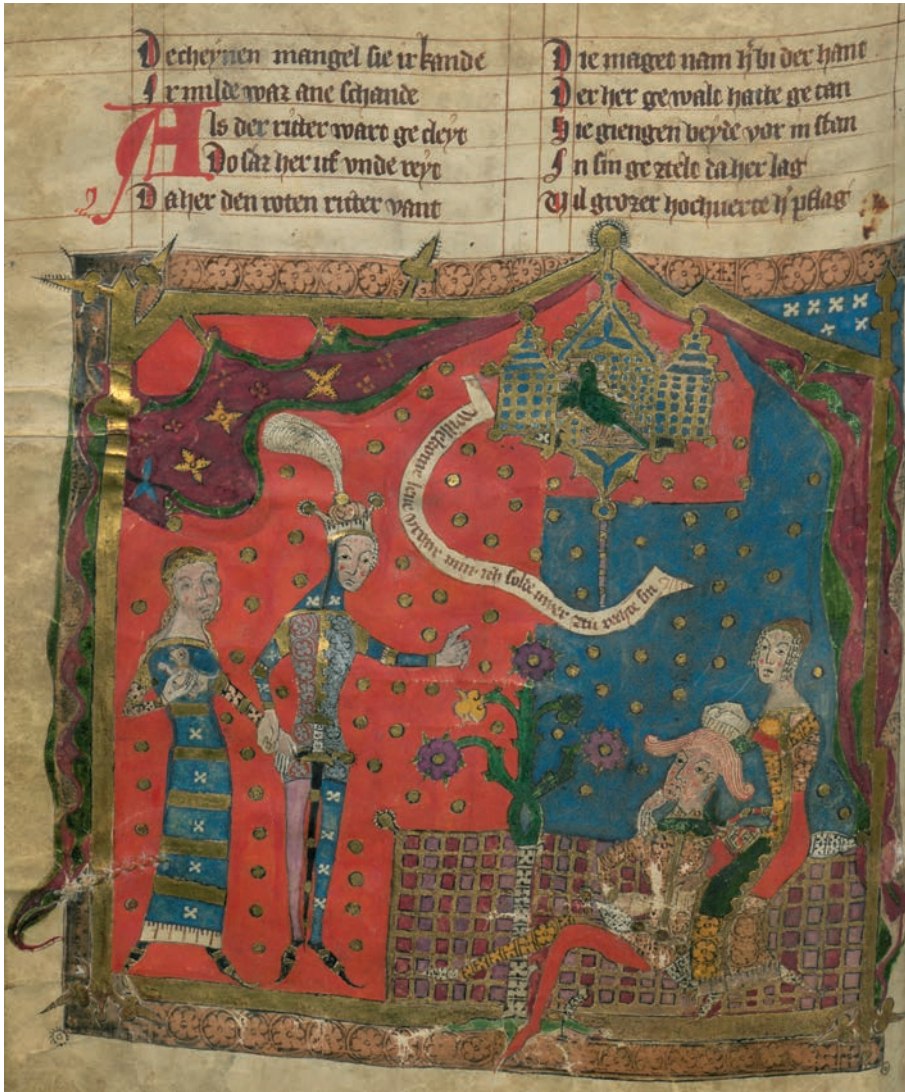 Decheynen mangel sie irkande
Ir milde waz ane schande
Als der ritter wart gecleyt
Do saz her uf vnde reyt
Da her den roten ritter vant
Die maget nam h̄ bi der hant
Der her gewalt hatte getan
Sie giengen beyde vor in stan
In sin gezielt da her lag
Vil grozer hochuerte h̄ pflag
Willekome vrowe min ich solde uwer zu rechte sin